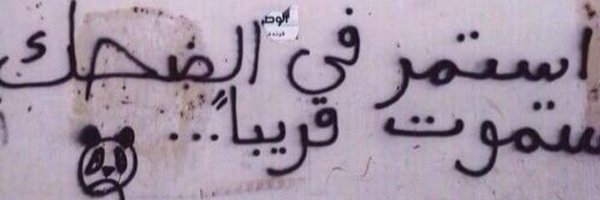 استمر في الضحك
ستموت قريباً...
الوط